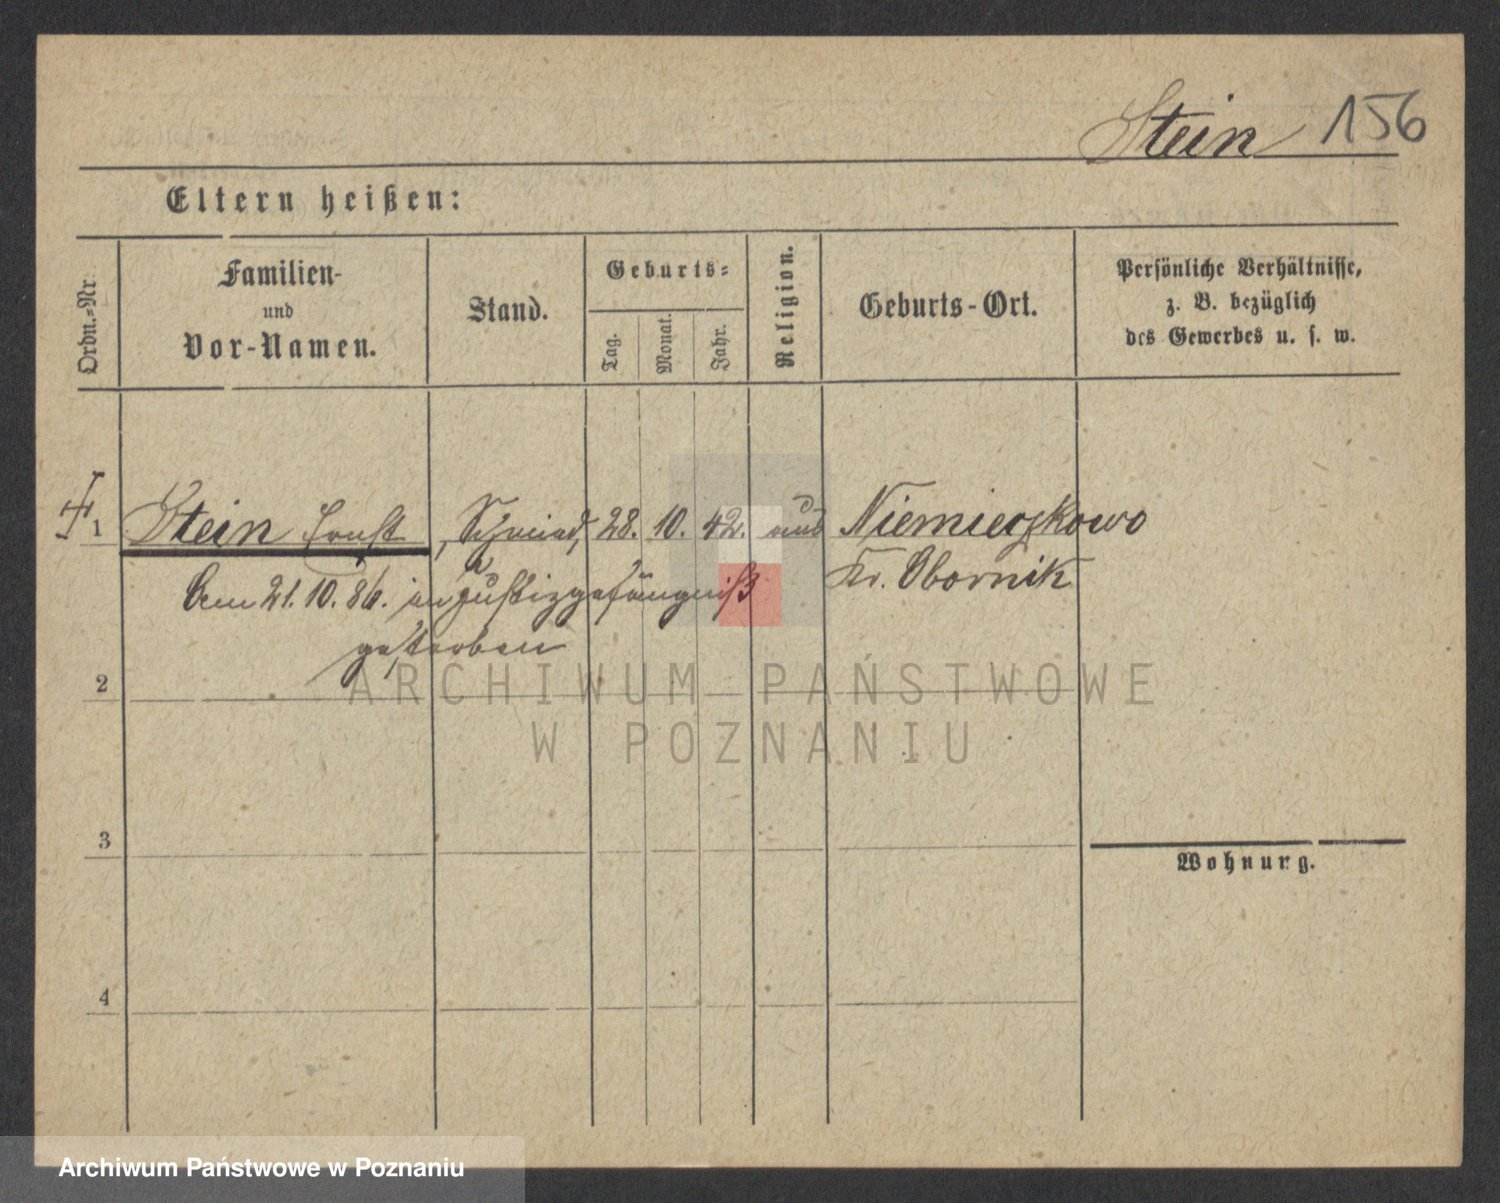 Stein 156
Eltern heißen:
Ordn.=Nr.
Familien-
und
Vor-Namen.
Stand.
Geburts=
Tag.
Monat.
Jahr.
Religion.
Geburts-Ort.
Persönliche Verhältnisse,
z. B. bezüglich
des Gewerbes u. s. w.
1 Stein Ernst, Schmied, 28. 10. 42. aus Niemieczkowo
Kr. Obornik
Am 21. 10. 86. im Justizgefängniß
gestorben
2
3
4
Wohnung.
ARCHIWUM PAŃSTWOWE
W POZNANIU
Archiwum Państwowe w Poznaniu